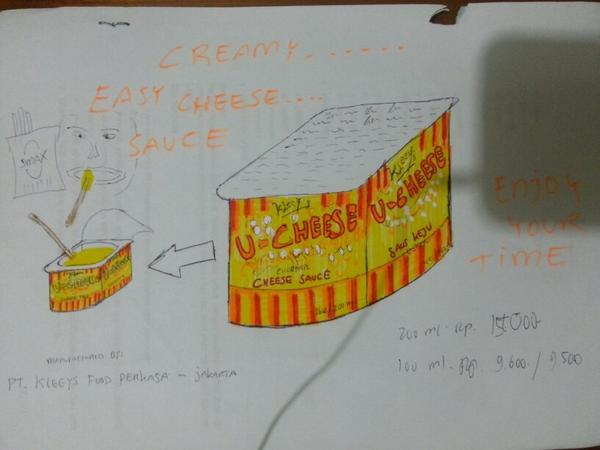 CREAMY......
EASY CHEESE....
SAUCE
SMAX
Kleey's
U-CHEESE
CHEESE SAUCE
Kleeys
U-CHEESE
SAUS KEJU
ENJOY
YOUR
TIME
200 ml - Rp. 15.000
100 ml - Rp. 9.600 / 9.500
MANUFACTURED BY:
PT. KLEEYS FOOD PERKASA - JAKARTA